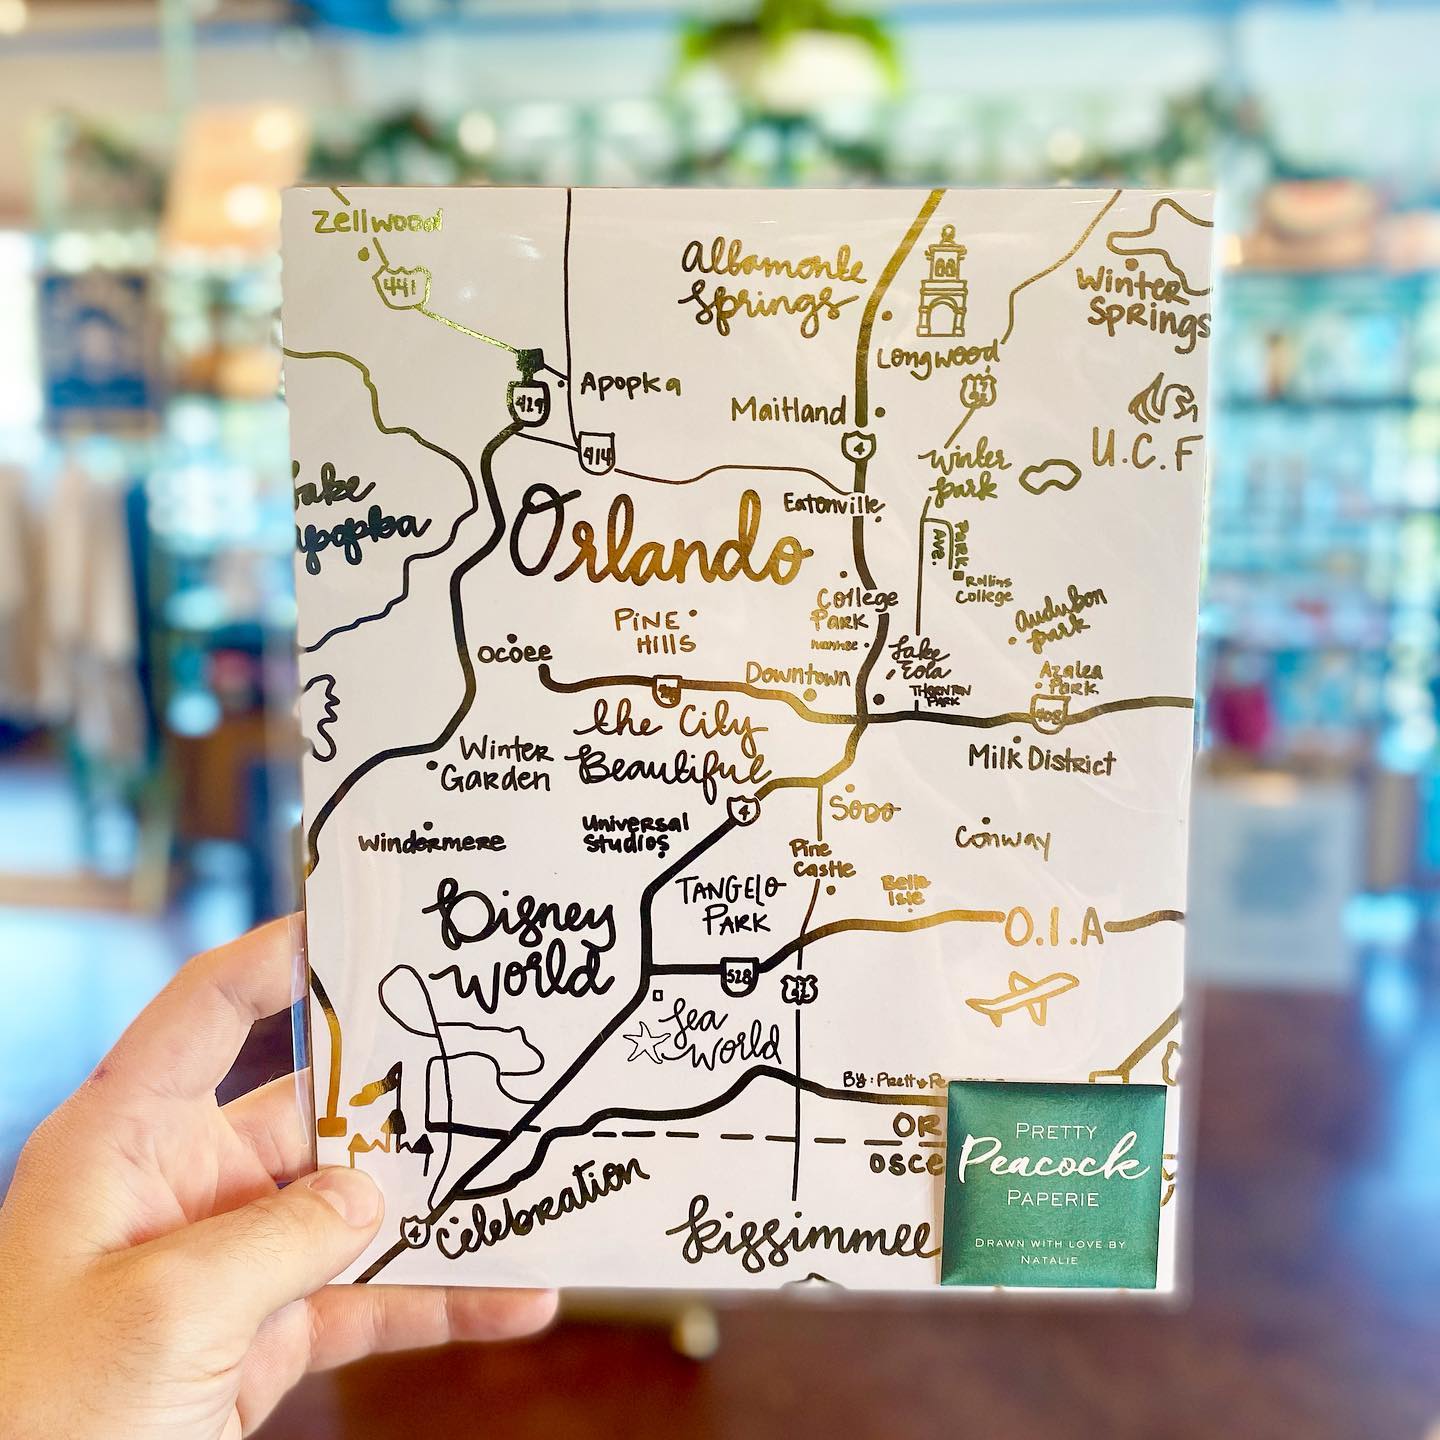 Zellwood
441
Altamonte
Springs
Winter
Springs
Longwood
17
92
Apopka
429
Maitland
U.C.F
414
4
Winter
Park
Lake
Apopka
Orlando
Eatonville
Park
Ave.
Rollins
College
College
Park
Ivanhoe
Audubon
Park
Pine
Hills
Ocoee
Lake
Eola
Downtown
Thornton
Park
Azalea
Park
408
408
the City
Beautiful
Winter
Garden
Milk District
4
SODO
Windermere
Universal
Studios
Conway
Pine
Castle
Disney
World
Tangelo
Park
Belle
Isle
O.I.A
528
Sea
World
By: Pretty Pe
OR
OSCE
Celebration
4
Kissimmee
PRETTY
Peacock
PAPERIE
DRAWN WITH LOVE BY
NATALIE